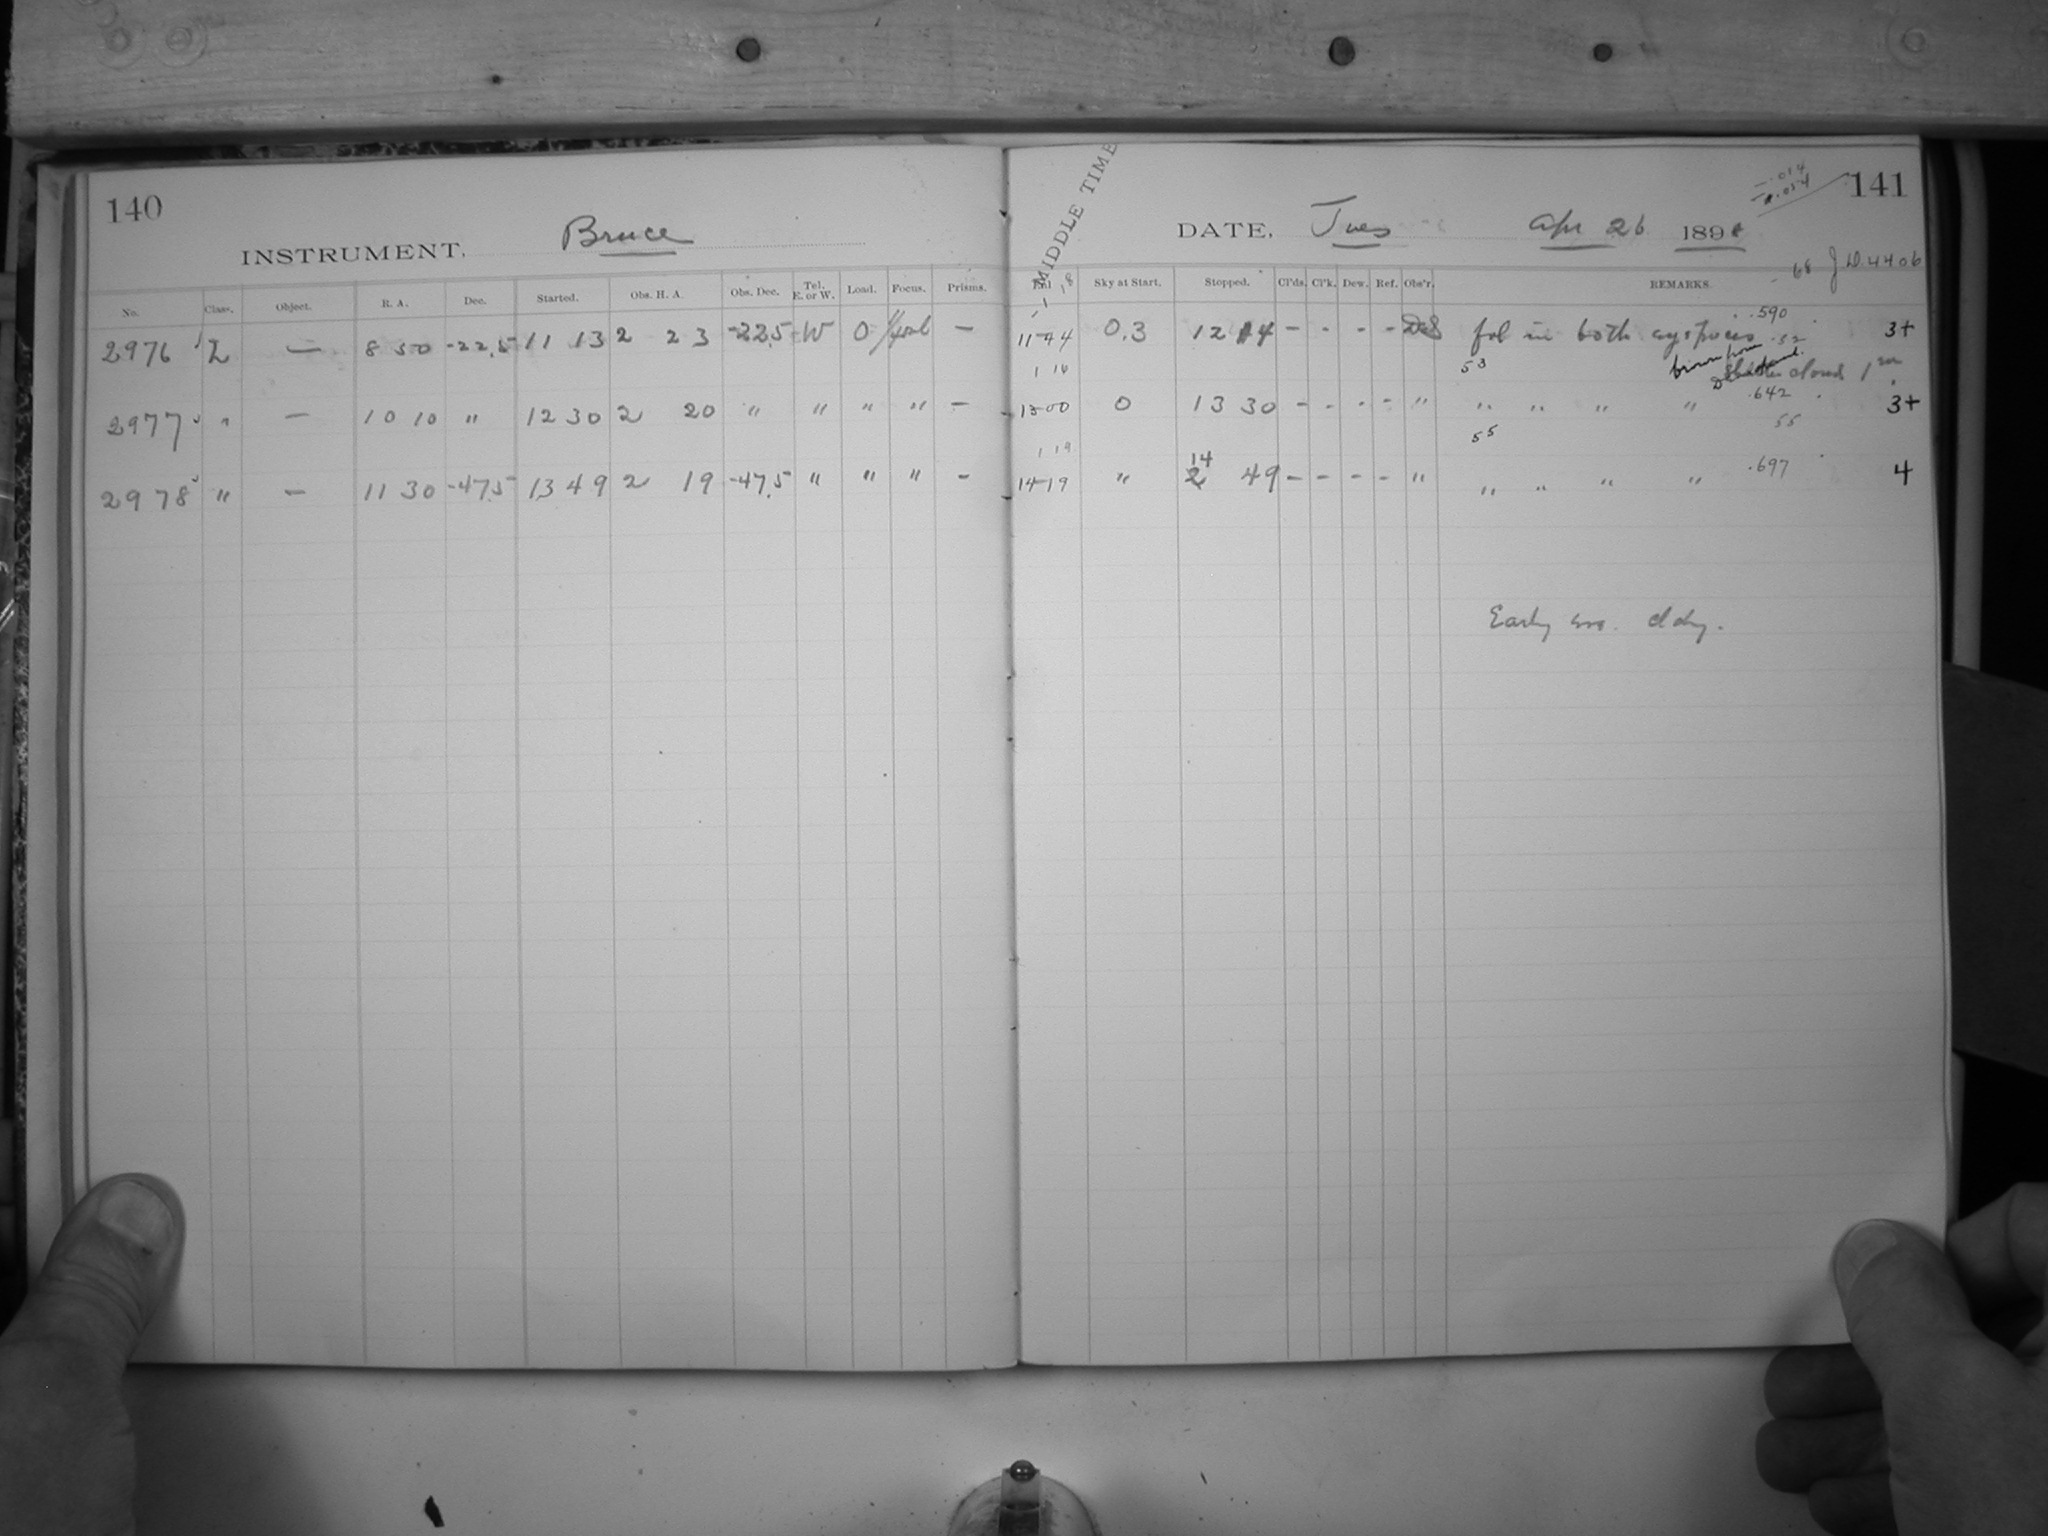 140
INSTRUMENT. Bruce
No. Class. Object. R. A. Dec. Started. Obs. H. A. Obs. Dec. Tel. E. or W. Load. Focus. Prisms.
2976 L — 8 50 -22.5 11 13 2 23 -22.5 W 0 —
2977 " — 10 10 " 12 30 2 20 " " " " —
2978 " — 11 30 -47.5 13 49 2 19 -47.5 " " " —
MIDDLE TIME
141
DATE. Tues Apr 26 189
J.D. 4406
68
Sky at Start. Stopped. Cl'ds. Cl'k. Dew. Ref. Obs'r. REMARKS.
1 18
11 44 0.3 12 14 - - - - fol in both .590 3+
53 .52
clouds 1m
1 16
13 00 0 13 30 - - - - " " " " " .642 3+
55 55
1 19
14 19 " 14 49 - - - - " " " " " .697 4
Early eve. cldy.